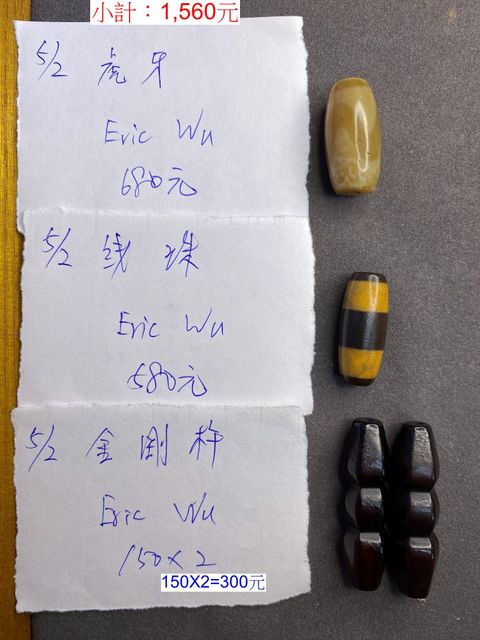 小計：1,560元
5/2 虎牙
Eric Wu
680元
5/2 线珠
Eric Wu
580元
5/2 金剛杵
Eric Wu
150X2
150X2=300元